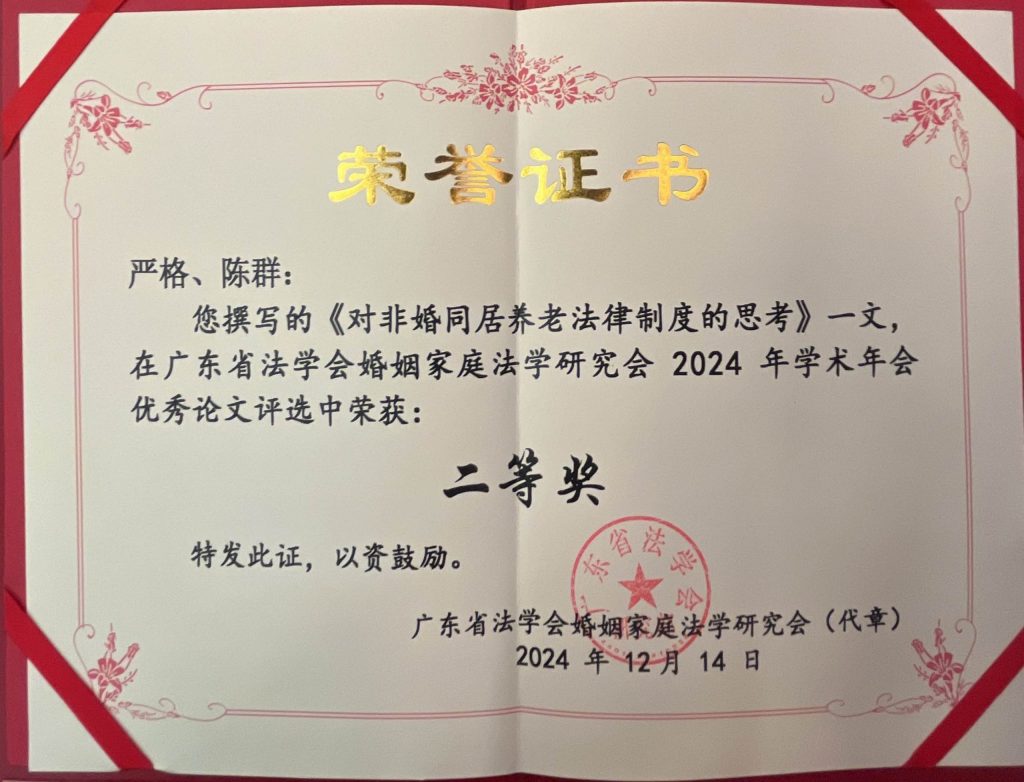 荣誉证书
严格、陈群：
您撰写的《对非婚同居养老法律制度的思考》一文，
在广东省法学会婚姻家庭法学研究会 2024 年学术年会
优秀论文评选中荣获：
二等奖
特发此证，以资鼓励。
广东省法学会
广东省法学会婚姻家庭法学研究会（代章）
2024 年 12 月 14 日